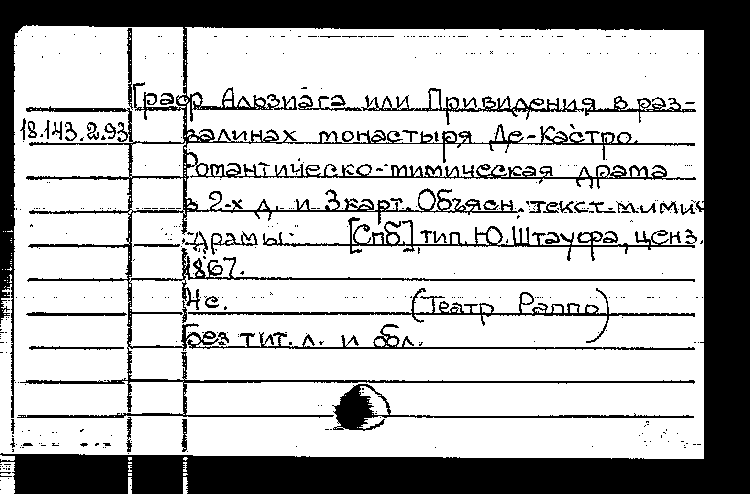 Граф Альзиага или Привидения в раз-
18.143.2.93 валинах монастыря Де-Кастро.
Романтическо-мимическая драма
в 2-х д. и 3 карт. Объясн. текст мимич
драмы. [Спб.], тип. Ю. Штауфа, ценз.
1867.
4 с. (Театр Раппо)
Без тит. л. и обл.